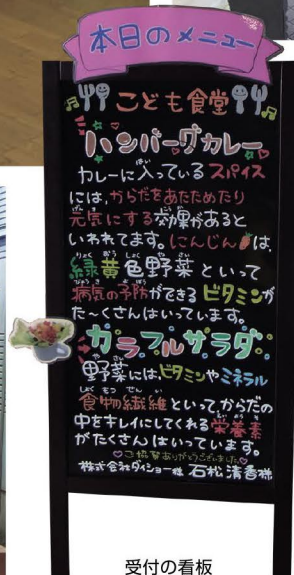 本日のメニュー
こども食堂
ハンバーグカレー
カレーに入っているスパイス
には、からだをあたためたり
元気にする効果があると
いわれてます。にんじんは、
緑黄色野菜といって
病気の予防ができるビタミンが
た〜くさんはいっています。
カラフルサラダ
野菜にはビタミンやミネラル
食物繊維といってからだの
中をキレイにしてくれる栄養素
がたくさんはいっています。
ご協賛ありがとうございました
株式会社ダイショー様 石松清香様
受付の看板